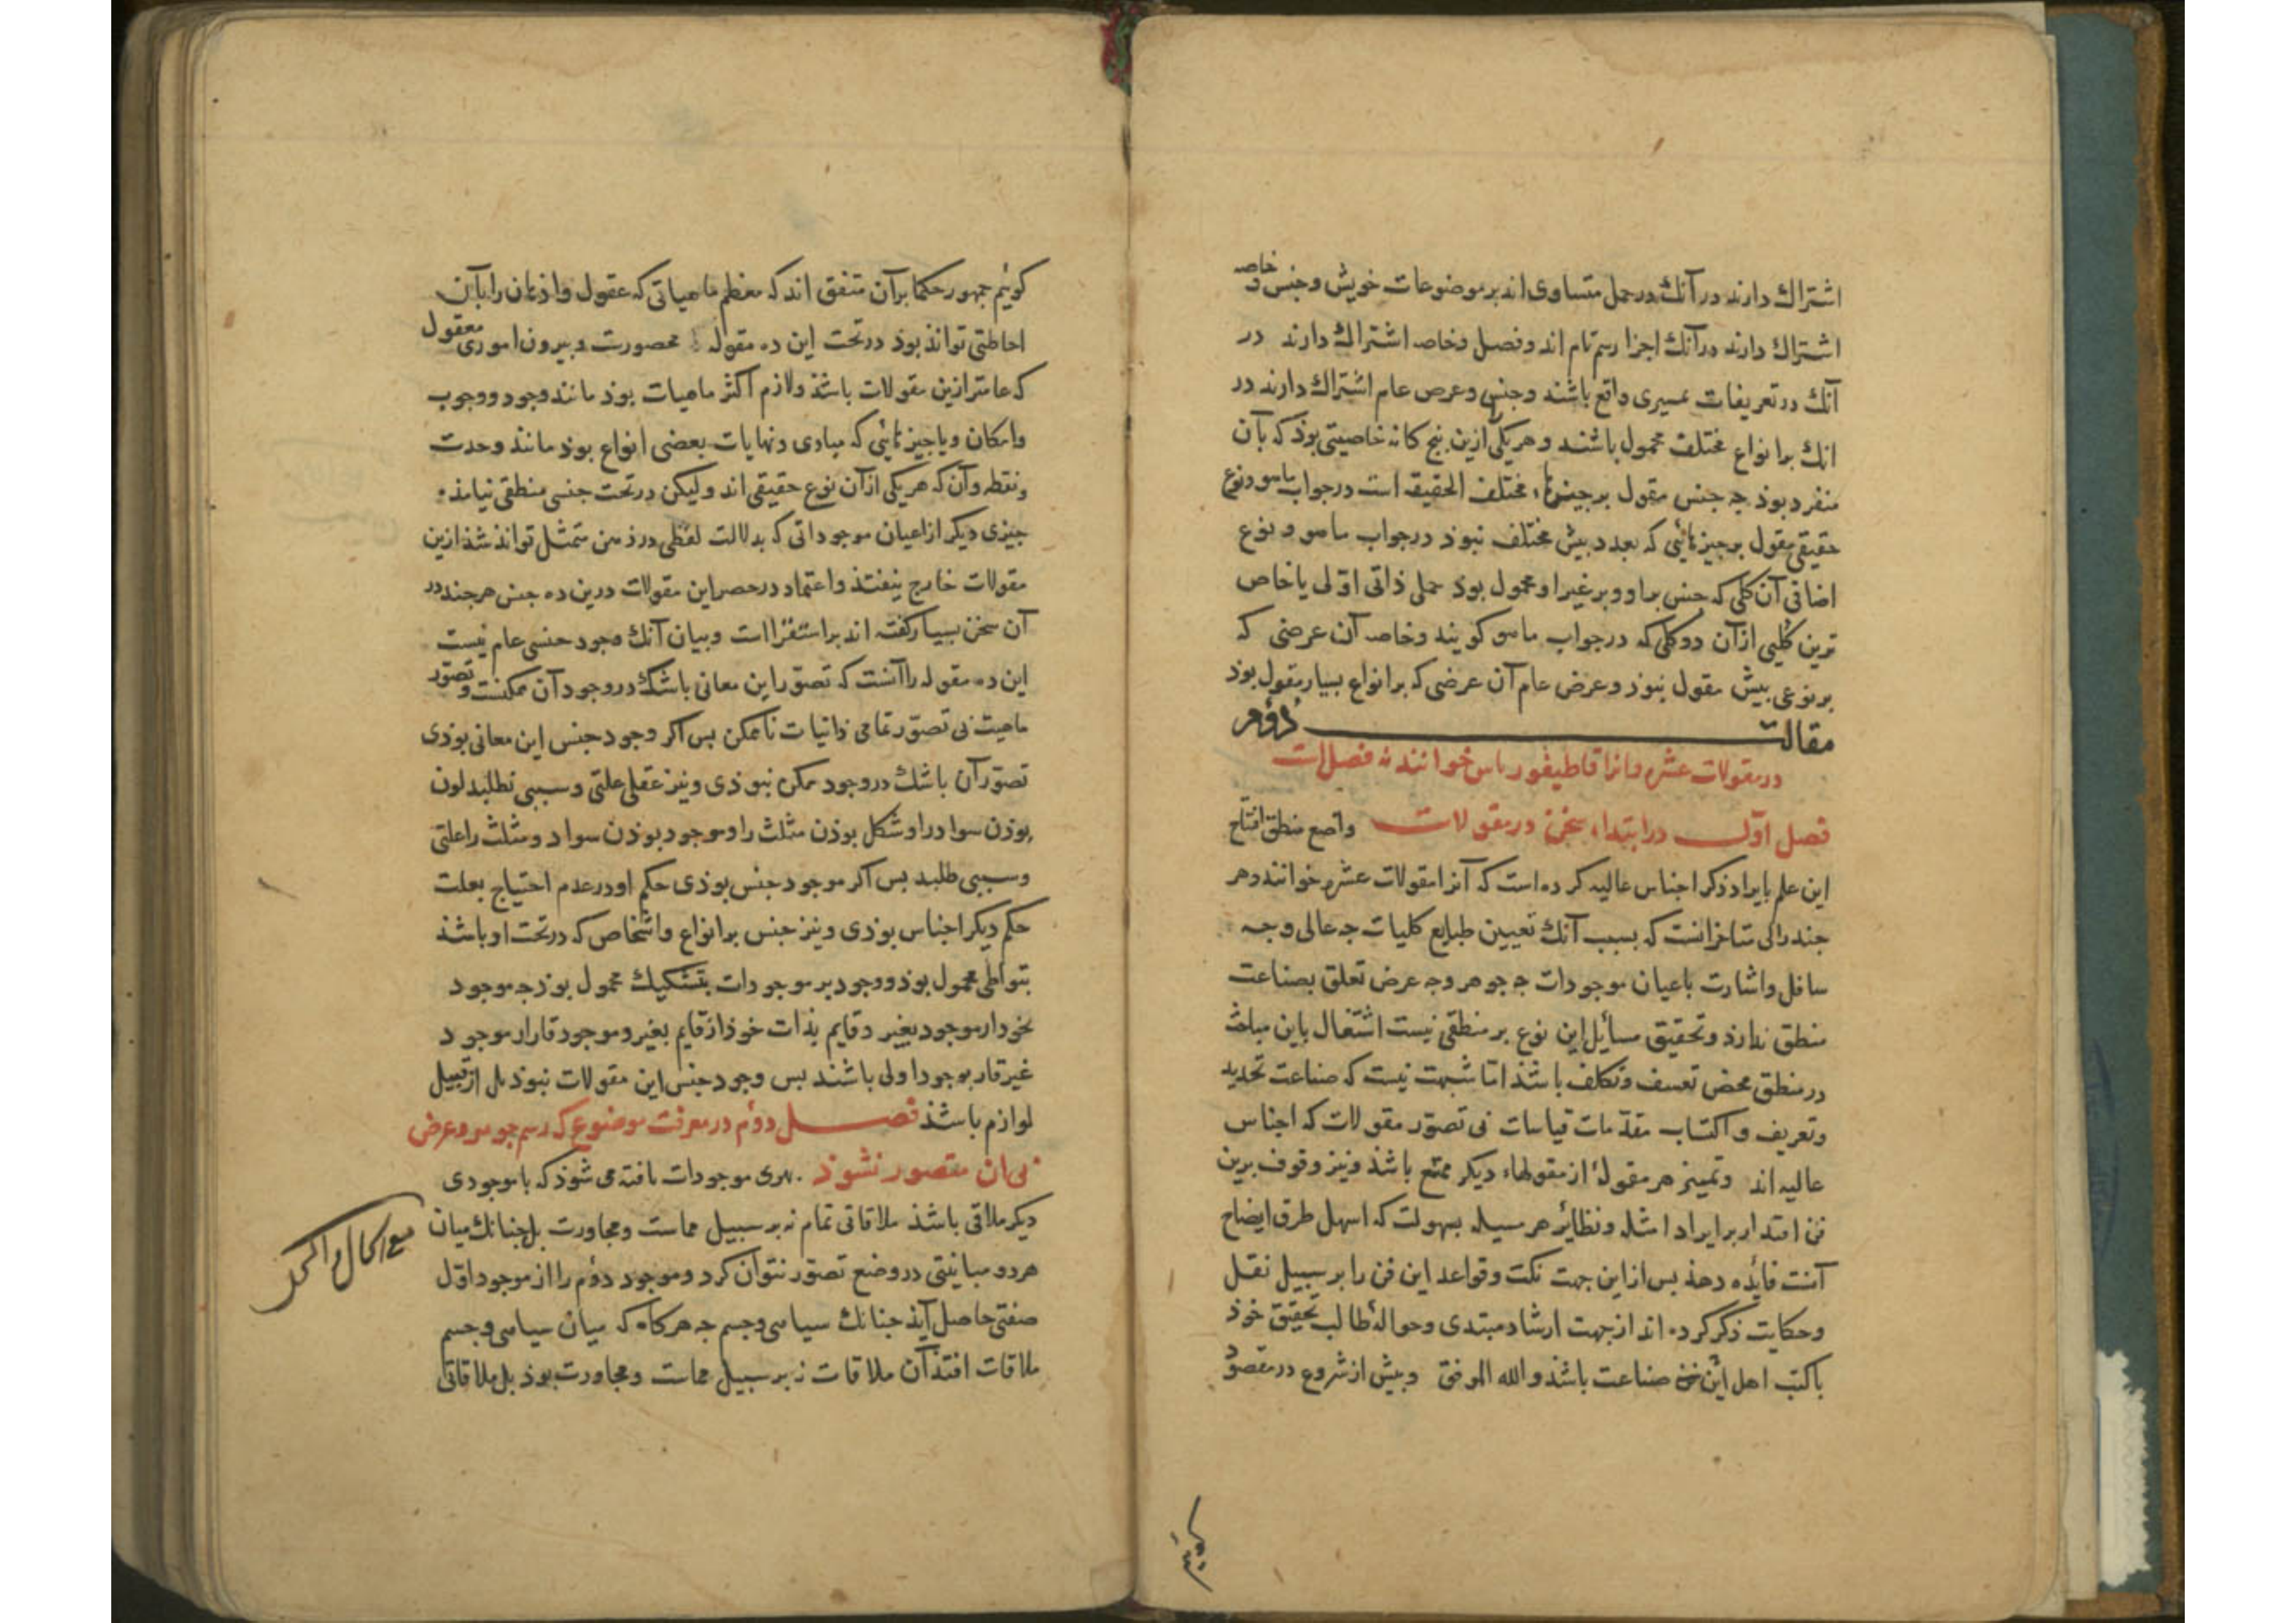 اشتراك دارند در آنك در حمل متساوی اند بر موضوعات خویش و جنس و خاصه
اشتراك دارند در آنك اجزا رسم تام اند و فصل و خاصه اشتراك دارند در
آنك در تعریفات ممیزی واقع باشند و جنس و عرض عام اشتراك دارند در
انك بر انواع مختلف محمول باشند و هر یکی ازین پنج کانه خاصیتی بوذ که بآن
منفرد بوذ جه جنس مقول بر جیزهاء مختلف الحقیقه است در جواب ماهو و نوع
حقیقی مقول بر جیزهائی که بعدد بیش مختلف نبوذ در جواب ماهو و نوع
اضافی آن کلی که جنس بر او و بر غیر او محمول بوذ حملی ذاتی اولی یا خاص
ترین کلیی از آن دو کلی که در جواب ماهو کویند و خاصه آن عرضی که
بر نوعی بیش مقول نبوذ و عرض عام آن عرضی که بر انواع بسیار مقول بوذ
مقالت دوم
در مقولات عشره و انرا قاطیغوریاس خوانند نه فصل است
فصل اول در ابتداء سخن در مقولات واضع منطق افتتاح
این علم بایراد ذکر اجناس عالیه کرده است که آنرا مقولات عشره خوانند و هر
جند رای متاخرانست که بسبب آنك تعیین طبایع کلیات جه عالی و جه
سافل و اشارت باعیان موجودات جه جوهر و جه عرض تعلق بصناعت
منطق ندارذ و تحقیق مسائل این نوع بر منطقی نیست اشتغال باین مباحث
در منطق محض تعسف و تکلف باشذ اما شبهت نیست که صناعت تحدید
و تعریف و اکتساب مقدمات قیاسات بی تصور مقولات که اجناس
عالیه اند و تمییز هر مقولۀ از مقولهاء دیکر ممتنع باشذ و نیز وقوف برین
فن اقتدار بر ایراد امثله و نظایر هر مسیله بسهولت که اسهل طرق ایضاح
آنست فایده دهذ بس از این جهت نکت و قواعد این فن را بر سبیل نقل
و حکایت ذکر کرده اند از جهت ارشاد مبتدی و حوالۀ طالب تحقیق خوذ
با کتب اهل این صناعت باشذ و الله الموفق و بیش از شروع در مقصود
کوییم
کوئیم جمهور حکما بر آن متفق اند که معظم ماهیاتی که عقول و اذهان را بآن
احاطتی تواند بوذ در تحت این ده مقوله محصورست و بیرون اموری معقول
که عامتر ازین مقولات باشذ و لازم اکثر ماهیات بوذ مانند وجود و وجوب
و امکان و یا جیزهائی که مبادی و نهایات بعضی انواع بوذ مانند وحدت
و نقطه و آن که هر یکی از آن نوع حقیقی اند و لیکن در تحت جنسی منطقی نیایذ
جیزی دیکر از اعیان موجوداتی که بدلالت لفظی در ذهن متمثل تواند شذ ازین
مقولات خارج نیفتذ و اعتماد در حصر این مقولات درین ده جنس هر جند در
آن سخن بسیار کفته اند بر استقرا است و بیان آنك وجود جنسی عام نیست
این ده مقوله را آنست که تصور این معانی با شك در وجود آن ممکنست و تصور
ماهیت بی تصور تمامی ذاتیات ناممکن بس اکر وجود جنس این معانی بوذی
تصور آن با شك در وجود ممکن نبوذی و نیز عقل علتی و سببی نطلبد لون
بوذن سواد را و شکل بوذن مثلث را و موجود بوذن سواد و مثلث را علتی
و سببی طلبد بس اکر موجود جنس بوذی حکم او در عدم احتیاج بعلت
حکم دیکر اجناس بوذی و نیز جنس بر انواع و اشخاص که در تحت او باشذ
بتواطی محمول بوذ و وجود بر موجودات بتشکیك محمول بوذ جه موجود
بخود از موجود بغیر و قایم بذات خوذ از قایم بغیر و موجود قار از موجود
غیر قار بوجود اولی باشند بس وجود جنس این مقولات نبوذ بل از قبیل
لوازم باشذ فصل دوم در معرفت موضوع که رسم جوهر و عرض
بی ان مقصور نشوذ بهری موجودات یافته می شوذ که با موجودی
دیکر ملاقی باشذ ملاقاتی تمام نه بر سبیل مماست و مجاورت بل جنانك میان
هر دو مباینتی در وضع تصور نتوان کرد و موجود دوم را از موجود اول
صفتی حاصل آیذ جنانك سیاهی و جسم جه هرکاه که میان سیاهی و جسم
ملاقات افتذ آن ملاقات نه بر سبیل مماست و مجاورت بوذ بل ملاقاتی